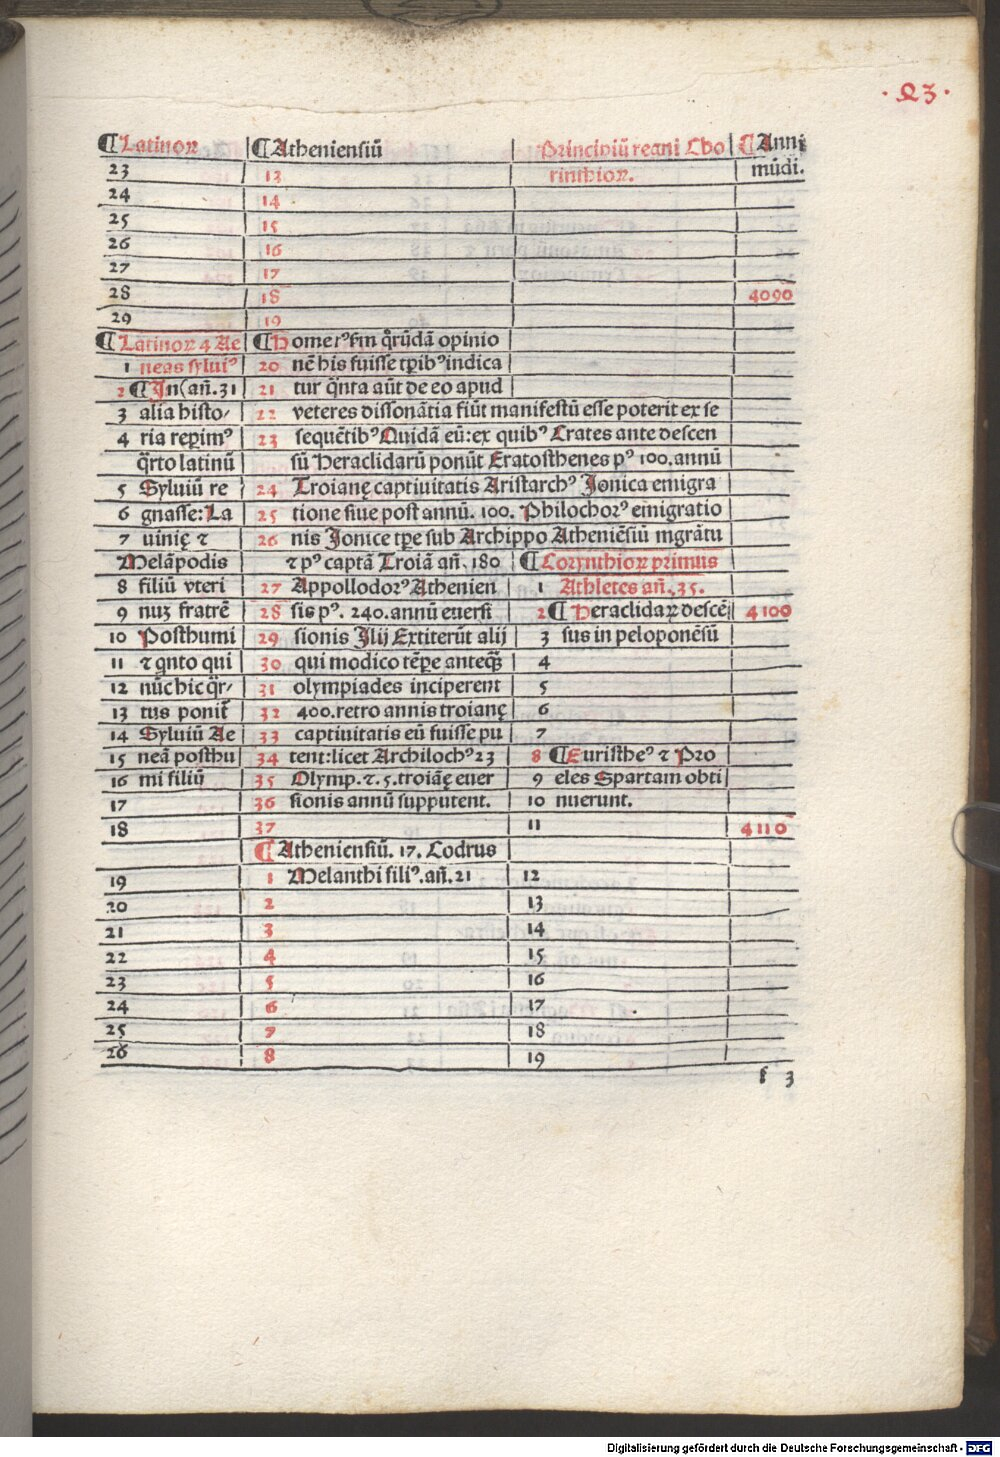 ·Q3·
¶Latinoꝝ ¶Atheniensiū Principiū regni Cho ¶Anni
23 13 rinthioꝝ. mūdi.
24 14
25 15
26 16
27 17
28 18 4090
29 19
¶Latinoꝝ 4 Ae ¶Homerꝰ fm q̄rūdā opinio
1 neas syluiꝰ 20 nē his fuisse tꝑibꝰ indica
2 ¶In alia añ. 31 21 tur q̄nta aūt de eo apud
3 alia histo/ 22 veteres dissonātia fiūt manifestū esse poterit ex se
4 ria reꝑimꝰ 23 sequētibꝰ Quidā eū: ex quibꝰ Crates ante descen
q̄rto latinū sū Heraclidarū ponūt Eratosthenes pꝰ 100. annū
5 Syluiū re 24 Troianę captiuitatis Aristarchꝰ Jonica emigra
6 gnasse: La 25 tione siue post annū. 100. Philochorꝰ emigratio
7 uinię ⁊ 26 nis Jonice tꝑe sub Archippo Atheniēsiū mgrātu
Melāpodis ⁊ pꝰ captā Troiā añ. 180 ¶Corynthioꝝ primus
8 filiū vteri 27 Appollodorꝰ Athenien 1 Athletes añ. 35.
9 nuꝫ fratrē 28 sis pꝰ. 240. annū euersi 2 ¶Heraclidaꝝ descē 4100
10 Posthumi 29 sionis Jlij Extiterūt alij 3 sus in peloponēsū
11 ⁊ gnto qui 30 qui modico tēꝑe anteq̄ꝫ 4
12 nūc hic q̄r/ 31 olympiades inciperent 5
13 tus ponit̄ 32 400. retro annis troianę 6
14 Syluiū Ae 33 captiuitatis eū fuisse pu 7
15 neā posthu 34 tent: licet Archilochꝰ 23 8 ¶Euristheꝰ ⁊ Pro
16 mi filiū 35 Olymp. ⁊. 5. troiāę euer 9 eles Spartam obti
17 36 sionis annū supputent. 10 nuerunt.
18 37 11 4110
¶Atheniensiū. 17. Codrus
19 1 Melanthi filiꝰ. añ. 21 12
20 2 13
21 3 14
22 4 15
23 5 16
24 6 17
25 7 18
26 8 19
f 3
Digitalisierung gefördert durch die Deutsche Forschungsgemeinschaft - DFG